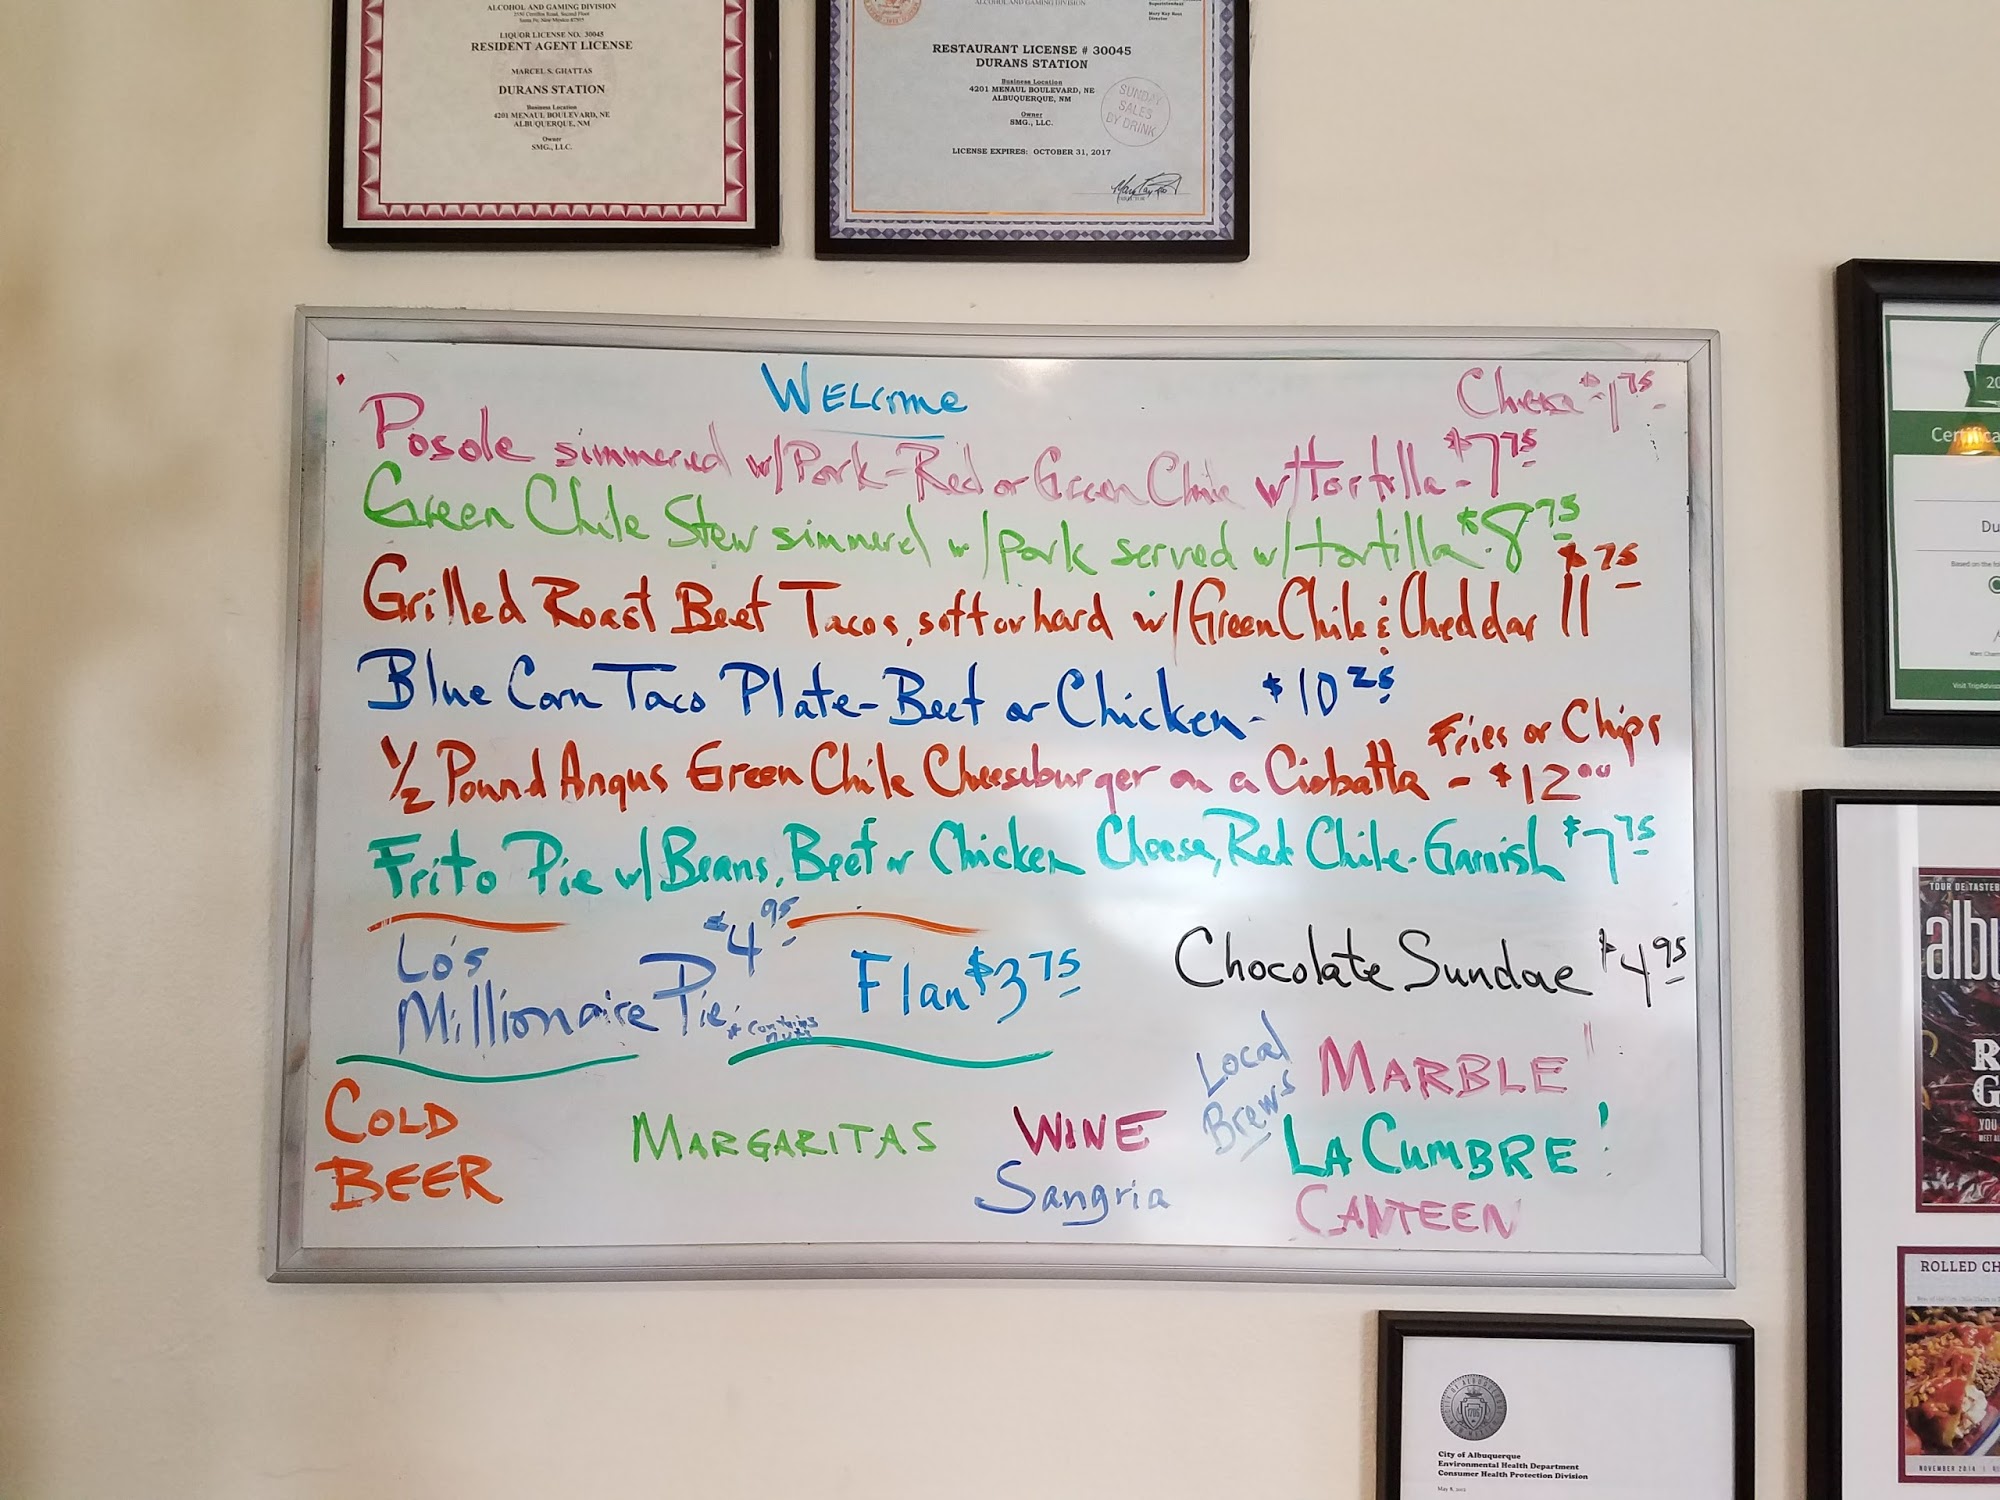 ALCOHOL AND GAMING DIVISION
LIQUOR LICENSE NO. 30045
RESIDENT AGENT LICENSE
MARCEL S. GHATTAS
DURANS STATION
Business Location
4201 MENAUL BOULEVARD, NE
ALBUQUERQUE, NM
Owner
SMG., LLC.
ALCOHOL AND GAMING DIVISION
Superintendent
Mary Kay Root
Director
RESTAURANT LICENSE # 30045
DURANS STATION
Business Location
4201 MENAUL BOULEVARD, NE
ALBUQUERQUE, NM
Owner
SMG., LLC.
SUNDAY
SALES
BY DRINK
LICENSE EXPIRES: OCTOBER 31, 2017
DIRECTOR
WELCOME
Cheese - $1 75
Posole simmered w/Pork-Red or Green Chile w/tortilla - $7 75
Green Chile Stew simmered w/pork served w/tortilla $8 75
Grilled Roast Beef Tacos, soft or hard w/Green Chile & Cheddar $11 75
Blue Corn Taco Plate-Beef or Chicken - $10 25
Fries or Chips
1/2 Pound Angus Green Chile Cheeseburger on a Ciabatta - $12 00
Frito Pie w/Beans, Beef or Chicken Cheese, Red Chile - Garnish $7 75
Lo's
Millionaire Pie $4 95
*contains
nuts
Flan $3 75
Chocolate Sundae $4 95
COLD
BEER
MARGARITAS
WINE
Sangria
Local
Brews
MARBLE
LA CUMBRE!
CANTEEN
20
Du
TOUR DE TASTE
albu
YOU
ROLLED CH
NOVEMBER 2014
City of Albuquerque
Environmental Health Department
Consumer Health Protection Division